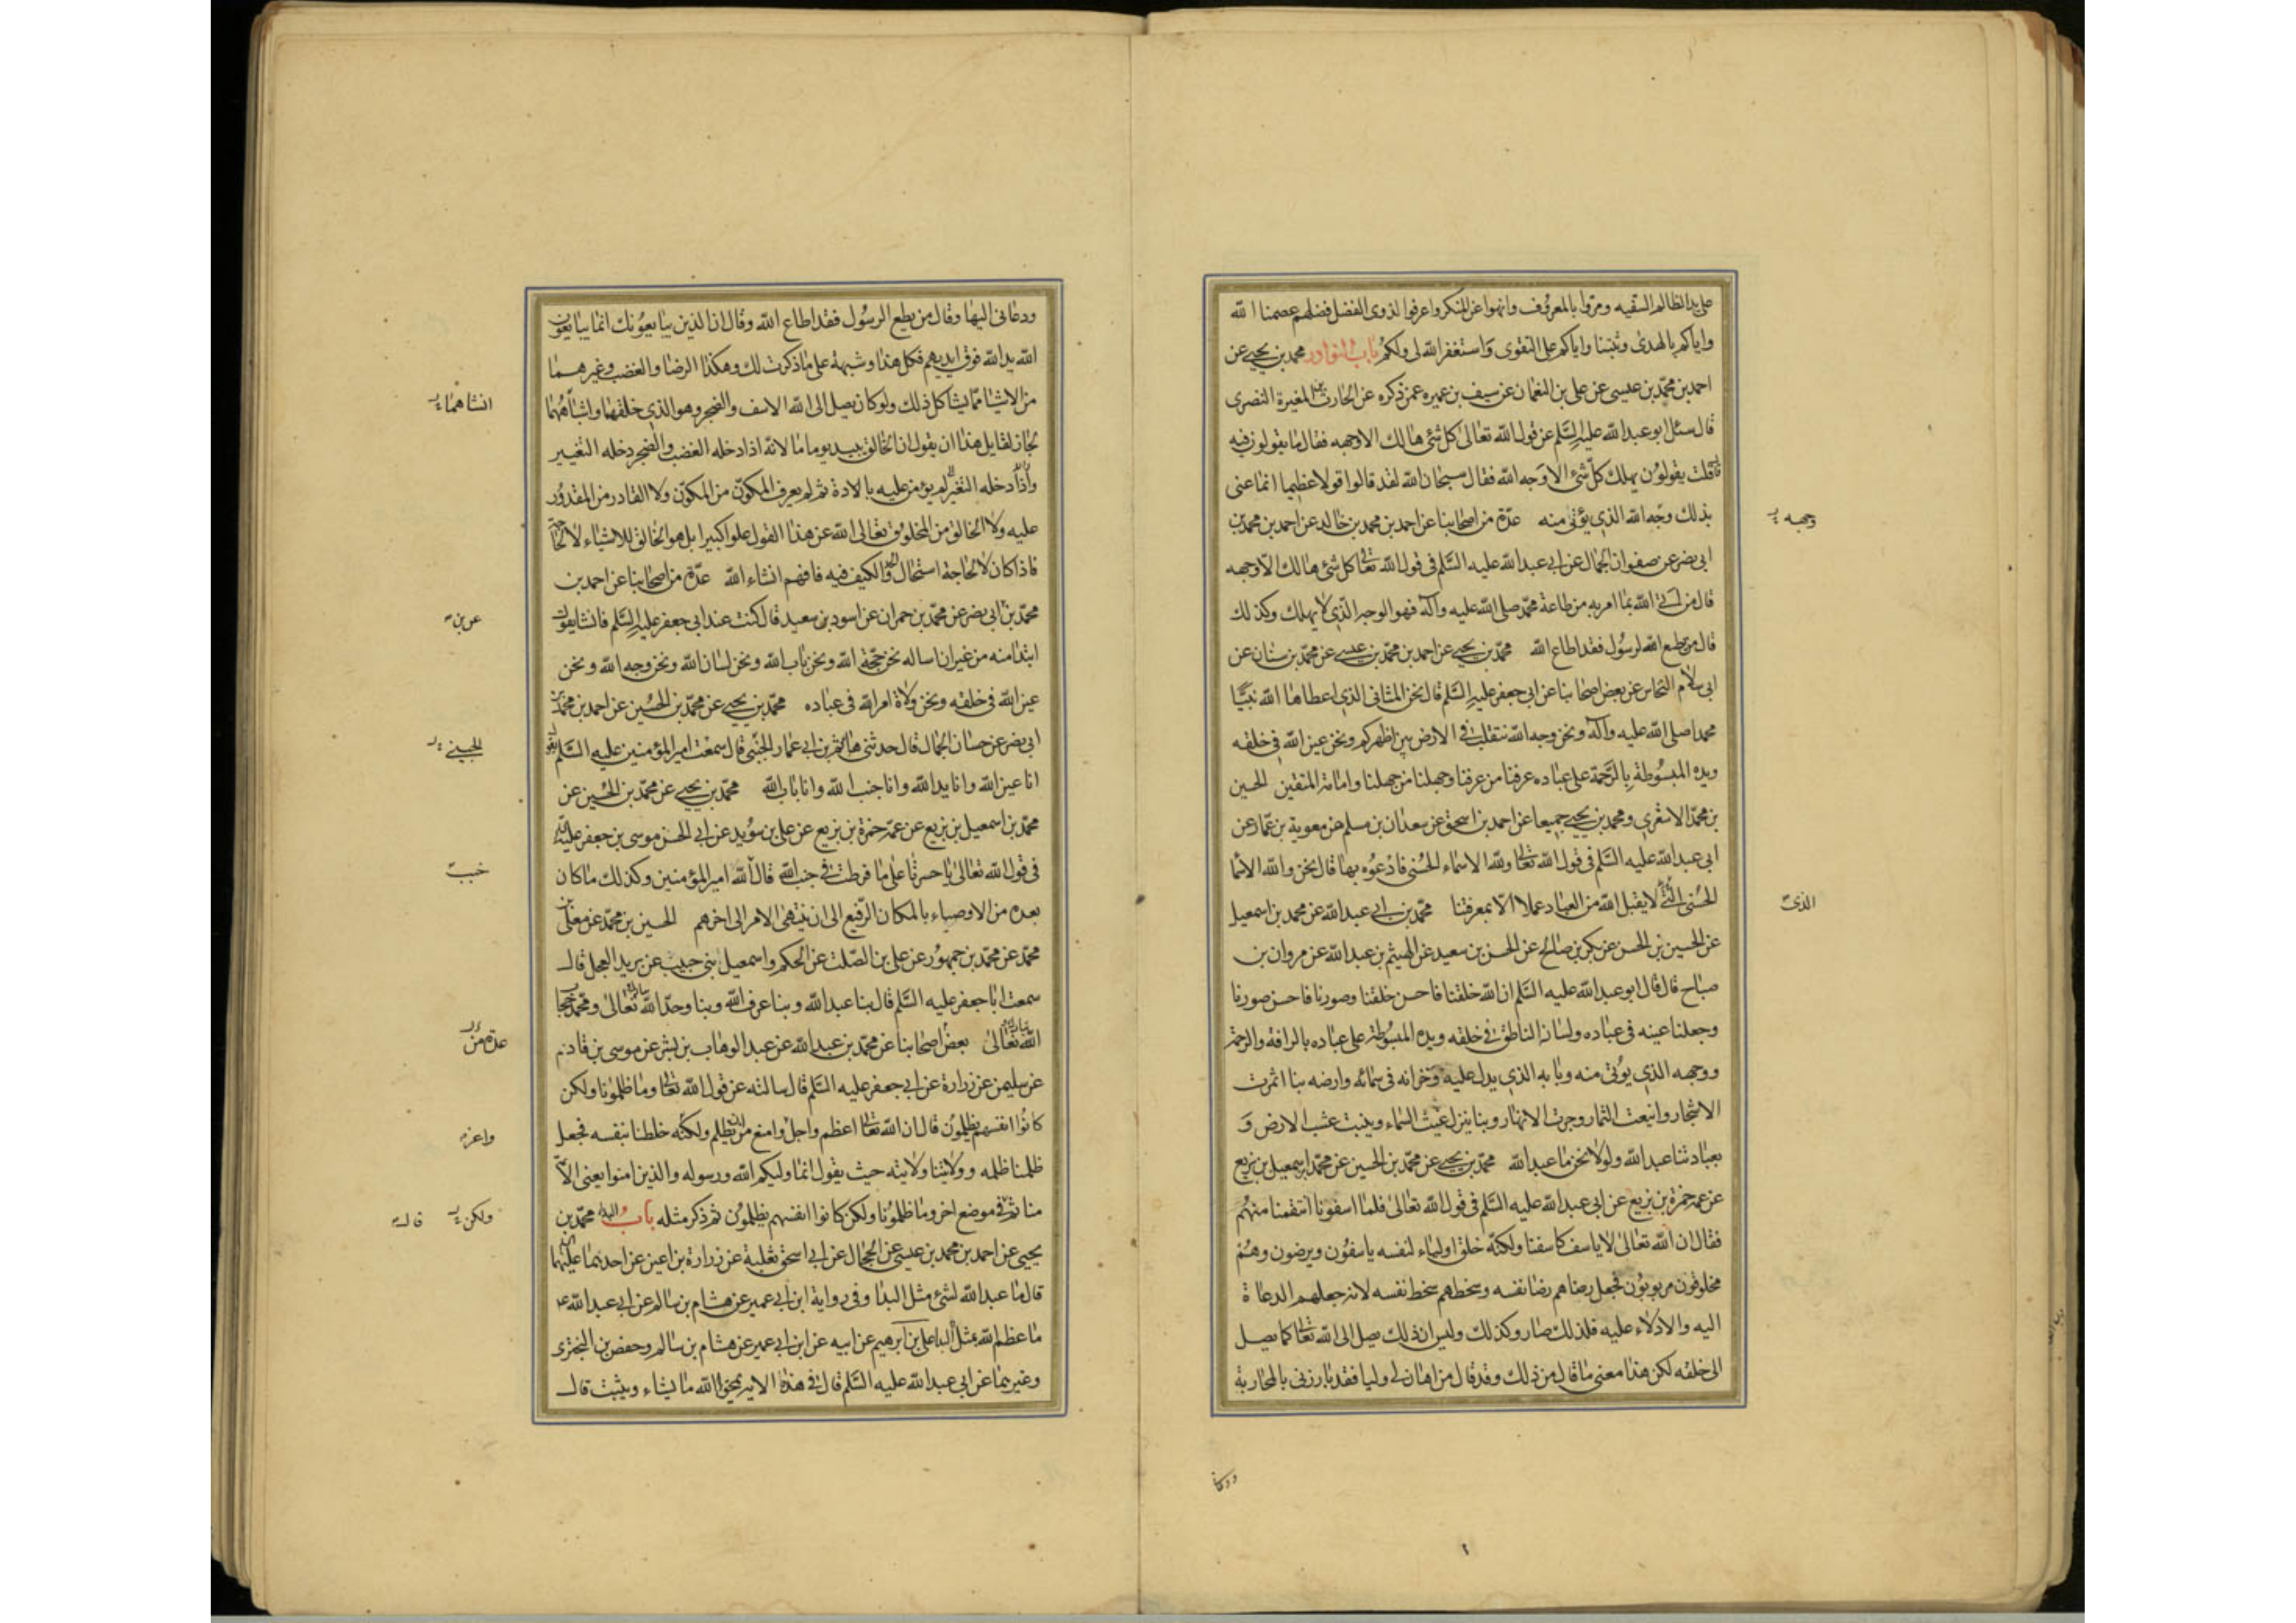 على يد الظالم السفيه ومروا بالمعروف وانهوا عن المنكر واعرفوا لذوى الفضل فضلهم عصمنا الله
واياكم بالهدى وثبتنا واياكم على التقوى واستغفر الله لى ولكم باب النوادر محمد بن يحيى عن
احمد بن محمد بن عيسى عن على بن النعمان عن سيف بن عميره عمن ذكره عن الحارث بن المغيرة النصرى
قال سئل ابو عبد الله عليه السلم عن قول الله تعالى كل شئ هالك الا وجهه فقال ما يقولون فيه
قلت يقولون يهلك كل شئ الا وجه الله فقال سبحان الله لقد قالوا قولا عظيما انما عنى
بذلك وجه الله الذى يؤتى منه عدة من اصحابنا عن احمد بن محمد بن خالد عن احمد بن محمد بن
وجهه
ابى نصر عن صفوان الجمال عن ابى عبد الله عليه السلم فى قول الله تعالى كل شئ هالك الا وجهه
قال من اتى الله بما امر به من طاعة محمد صلى الله عليه وآله فهو الوجه الذى لا يهلك وكذلك
قال من يطع الله لرسول فقد اطاع الله محمد بن يحيى عن احمد بن محمد بن عيسى عن محمد بن سنان عن
ابى سلام النحاس عن بعض اصحابنا عن ابى جعفر عليه السلم قال نحن المثانى الذى اعطاها الله نبينا
محمدا صلى الله عليه وآله ونحن وجه الله نتقلب فى الارض بين اظهركم ونحن عين الله فى خلقه
ويده المبسوطة بالرحمة على عباده عرفنا من عرفنا وجهلنا من جهلنا وامامة المتقين الحسين
بن محمد الاشعرى ومحمد بن يحيى جميعا عن احمد بن اسحق عن سعدان بن مسلم عن معوية بن عمار عن
ابى عبد الله عليه السلم فى قول الله تعالى ولله الاسماء الحسنى فادعوه بها قال نحن والله الاسما
الحسنى التى لا يقبل الله من العباد عملا الا بمعرفتنا محمد بن ابى عبد الله عن محمد بن اسمعيل
الذى
عن الحسين بن الحسن عن بكر بن صالح عن الحسن بن سعيد عن الهيثم بن عبد الله عن مروان بن
صباح قال قال ابو عبد الله عليه السلم ان الله خلقنا فاحسن خلقنا وصورنا فاحسن صورنا
وجعلنا عينه فى عباده ولسانه الناطق فى خلقه ويده المبسوطة على عباده بالرافة والرحمة
ووجهه الذى يؤتى منه وبابه الذى يدل عليه وخزانه فى سمائه وارضه بنا اثمرت
الاشجار وانيعت الثمار وجرت الانهار وبنا ينزل غيث السماء وينبت عشب الارض و
بعبادتنا عبد الله ولولا نحن ما عبد الله محمد بن يحيى عن محمد بن الحسين عن محمد بن اسمعيل بن بزيع
عن عمه حمزة بن بزيع عن ابى عبد الله عليه السلم فى قول الله تعالى فلما اسفونا انتقمنا منهم
فقال ان الله تعالى لا ياسف كاسفنا ولكنه خلق اولياء لنفسه ياسفون ويرضون وهم
مخلوقون مربوبون فجعل رضاهم رضا نفسه وسخطهم سخط نفسه لانه جعلهم الدعاة
اليه والادلاء عليه فلذلك صاروا كذلك وليس ان ذلك يصل الى الله تعالى كما يصل
الى خلقه لكن هذا معنى ما قال من ذلك وقد قال من اهان لى وليا فقد بارزنى بالمحاربة
ودعا
ودعانى اليها وقال من يطع الرسول فقد اطاع الله وقال ان الذين يبايعونك انما يبايعون
الله يد الله فوق ايديهم فكل هذا وشبهه على ما ذكرت لك وهكذا الرضا والغضب وغيرهما
من الاشياء مما يشاكل ذلك ولو كان يصل الى الله الاسف والضجر وهو الذى خلقهما وانشاهما
انشاهما
لجاز لقايل هذا ان يقول ان الخالق يبيد يوما ما لانه اذا دخله الغضب والضجر دخله التغيير
واذا دخله التغير لم يؤمن عليه بالابادة ثم لم يعرف المكون من المكون ولا القادر من المقدور
عليه ولا الخالق من المخلوق تعالى الله عن هذا القول علوا كبيرا بل هو الخالق للاشياء لا لحاجة
فاذا كان لا لحاجة استحال الحد والكيف فيه فافهم انشاء الله عدة من اصحابنا عن احمد بن
محمد بن ابى نصر عن محمد بن حمران عن اسود بن سعيد قال كنت عند ابى جعفر عليه السلم فانشا يقول
عن بن
ابتدا منه من غير ان اساله نحن حجة الله ونحن باب الله ونحن لسان الله ونحن وجه الله ونحن
عين الله فى خلقه ونحن ولاة امر الله فى عباده محمد بن يحيى عن محمد بن الحسين عن احمد بن محمد بن
ابى نصر عن حسان الجمال قال حدثنى هاشم بن ابى عمار الجنبى قال سمعت امير المؤمنين عليه السلم يقول
انا عين الله وانا يد الله وانا جنب الله وانا باب الله محمد بن يحيى عن محمد بن الحسين عن
محمد بن اسمعيل بن بزيع عن عمه حمزة بن بزيع عن على بن سويد عن ابى الحسن موسى بن جعفر عليه
فى قول الله تعالى يا حسرتا على ما فرطت فى جنب الله قال الله امير المؤمنين وكذلك ما كان
بعده من الاوصياء بالمكان الرفيع الى ان ينتهى الامر الى اخرهم الحسين بن محمد عن معلى بن
محمد عن محمد بن جمهور عن على بن الصلت عن الحكم واسمعيل بنى حبيب عن بريد العجلى قال
سمعت ابا جعفر عليه السلم قال بنا عبد الله وبنا عرف الله وبنا وحد الله تعالى ومحمد حجاب
الله تعالى بعض اصحابنا عن محمد بن عبد الله عن عبد الوهاب بن بشر عن موسى بن قادم
عدة من
عن سليمن عن زرارة عن ابى جعفر عليه السلم قال سالته عن قول الله تعالى وما ظلمونا ولكن
كانوا انفسهم يظلمون قال ان الله تعالى اعظم واجل وامنع من ان يظلم ولكنه خلطنا بنفسه فجعل
واعز
ظلمنا ظلمه وولايتنا ولايته حيث يقول انما وليكم الله ورسوله والذين امنوا يعنى الا
منا ثم فى موضع اخر وما ظلمونا ولكن كانوا انفسهم يظلمون ثم ذكر مثله باب البداء محمد بن
ولكن قال
يحيى عن احمد بن محمد بن عيسى عن الحجال عن ابى اسحق ثعلبة عن زرارة بن اعين عن احدهما عليهما
قال ما عبد الله لشئ مثل البدا وفى رواية ابن ابى عمير عن هشام بن سالم عن ابى عبد الله ع
ما عظم الله بمثل البدا على بن ابرهيم عن ابيه عن ابن ابى عمير عن هشام بن سالم وحفص بن البخترى
وغيرهما عن ابى عبد الله عليه السلم قال فى هذه الاية يمحو الله ما يشاء ويثبت قال